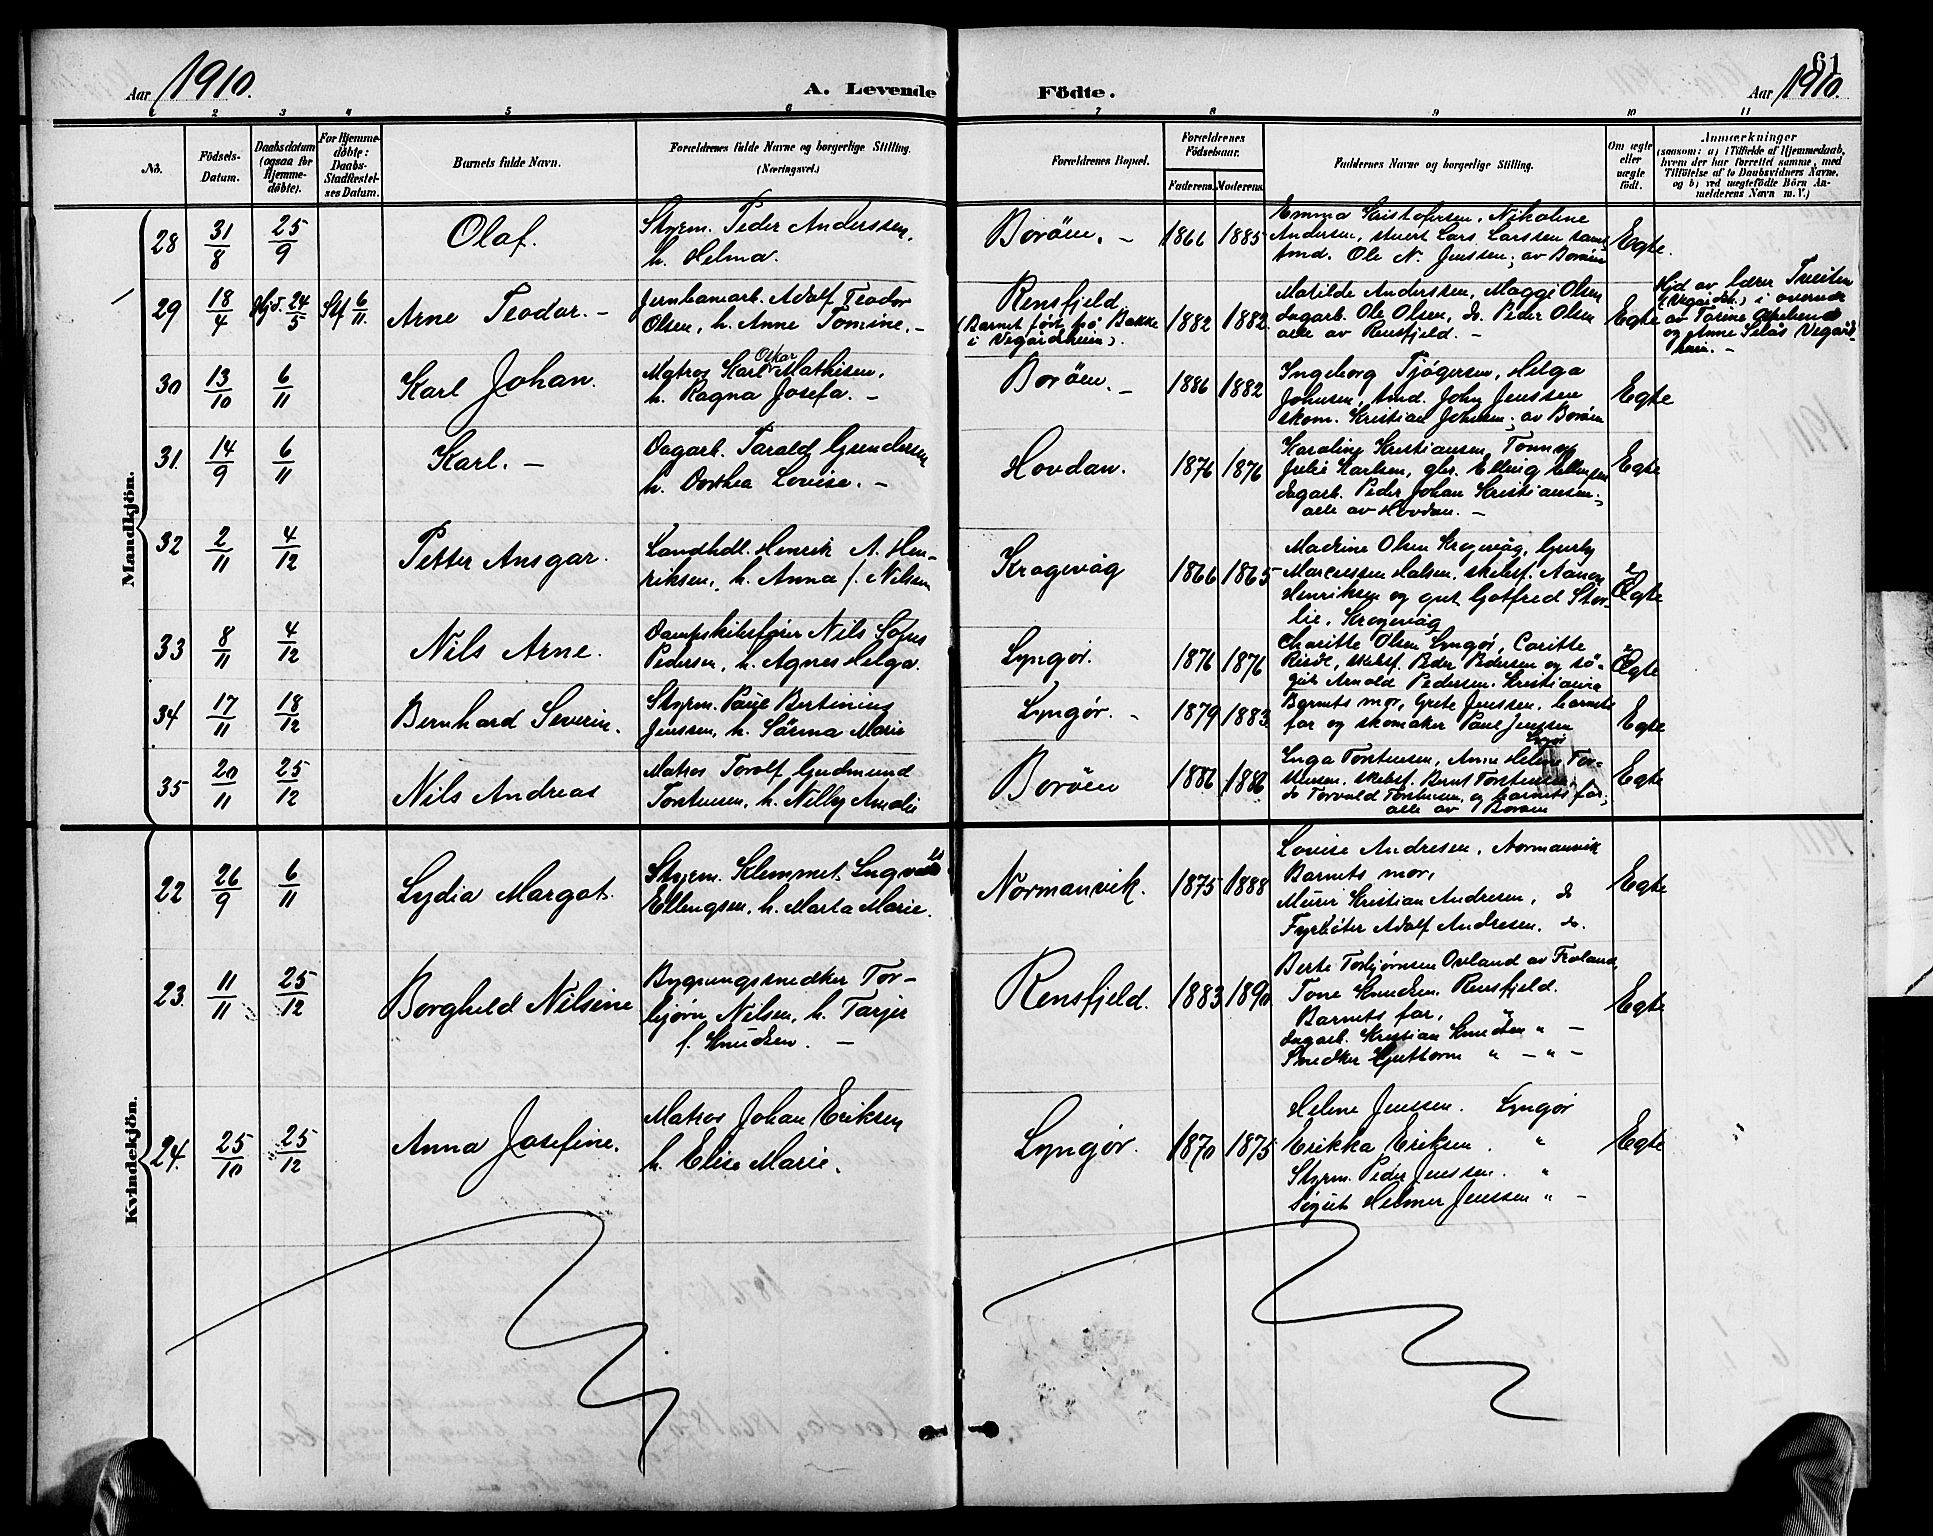 Aar 1910.
A. Levende Födte.
61
Aar 1910.
1 2 3 4 5 6 7 8 9 10 11
No.
Födsels-
Datum.
Daabsdatum
(ogsaa for
Hjemme-
döbte).
For Hjemme-
döbte:
Daabs-
Stadfæstel-
ses Datum.
Barnets fulde Navn.
Forældrenes fulde Navne og borgerlige Stilling.
(Næringsvei.)
Forældrenes Bopæl.
Forældrenes
Födselsaar.
Faderens. Moderens.
Faddernes Navne og borgerlige Stilling.
Om ægte
eller
uægte
født.
Anmærkninger
(saasom: a) i Tilfælde af Hjemmedaab,
hvem der har forrettet samme, med
Tilföielse af to Daabsvidners Navne,
og b) ved uægtefödte Börn An-
melderens Navn m. V.)
Mandkjön.
28 31/8 25/9 Olaf.
Styrm. Peder Anderssen,
h. Helma.
Borøen. – 1866 1885
Emma Kristofersen, Nikoline
Andersen, stuert Lars Larssen samt
tmd. Ole N. Jenssen; av Borøen
Egte.
29 18/4 Hjd. 24/5 Stf 6/11. Arne Teodor. –
Jernbanearb. Adolf Teodor
Olsen, h. Anne Tomine. –
Rensfjeld.
(Barnet født på Bakke
i Vegårdsheien).
1882 1882
Matilde Anderssen, Magge Olsen
dagarb. Ole Olsen, do. Peder Olsen
alle av Rensfjeld. –
Egte
Hjd av lærer Tveiten
(Vegårdsh.) i overvær
av Tarine
og Anne Selås Vegårds-
heien. –
30 13/10 6/11 Karl Johan.
Matros Karl Oskar Mathisen,
h. Ragna Josefa. –
Borøen. – 1886 1882
Ingeborg Tjøgersen, Helga
Johnsen, tmd. John Jenssen
skom. Kristian Johnsen; av Borøen
Egte
31. 14/9 6/11 Karl. –
Dagarb. Tarald Gundersen
h. Dorthea Lovise. –
Hovdan. 1876 1876
Karoline Kristiansen, Tonny
Julie Karlsen, gbr. Elling Ellingsen
dagarb. Peder Johan Kristiansen;
alle av Hovdan. –
Egte
32 2/11 4/12 Petter Ansgar.
Landhdl. Henrik A. Hen-
riksen, h. Anna f. Nilsen
Kragevåg 1866 1865
Madrine Olsen Kragevåg, Gurly
Marcussen Halsen, skibsf. Aanon
Henriksen og gut Gotfred Stor-
lie, Kragevåg
Egte
33 8/11 4/12 Nils Arne.
Dampskibsfører Nils Sofus
Pedersen, h. Agnes Helga.
Lyngør. 1876 1876
Charitte Olsen Lyngør, Caritte
Riede, skibsf. Peder Pedersen og sø-
gut Arnold Pedersen. Kristiania
Egte
34 17/11 18/12 Bernhard Severin.
Styrm. Paul Bertinius
Jenssen, h. Särma Marie
Lyngør. – 1879 1883
Barnets mor, Grete Jenssen, barnets
far og skomaker Paul Jenssen
Lyngør
Egte
35 20/11 25/12 Nils Andreas
Matros Torolf Gudmund
Torstensen, h. Nilly Amalie
Borøen 1886 1886
Inga Torstensen, Anne Helene Tor-
stensen, skibsf. Bernt Torstensen,
do Torvald Torstensen og barnets far;
alle av Borøen
Egte
Kvindekjön.
22 26/9 6/11 Lydia Margot.
Styrm. Klemmet Ingvald
Ellengsen, h. Marta Marie.
Normanvik. 1875 1888
Lovise Andresen, Normanvik
Barnets mor,
Murer Kristian Andresen, do
Fyrbøter Adolf Andresen, do.
Egte
23. 11/11 25/12 Borghild Nilsine
Bygningssnedker Tor-
bjørn Nilsen, h. Tarjer
f. Knudsen. –
Rensfjeld. 1883 1890
Berte Torbjørnsen Osland av Froland,
Tone Knudsen, Rensfjeld.
Barnets far, "
dagarb. Kristian Knudsen " –
Snedker Guttorm " – " –
Egte
24. 25/10 25/12 Anna Josefine.
Matros Johan Eriksen
h. Elise Marie.
Lyngør. 1870 1875
Helene Jenssen. Lyngør
Erikka Eriksen. "
Styrm. Peder Jenssen. "
Søgut Helmer Jenssen " –
Egte